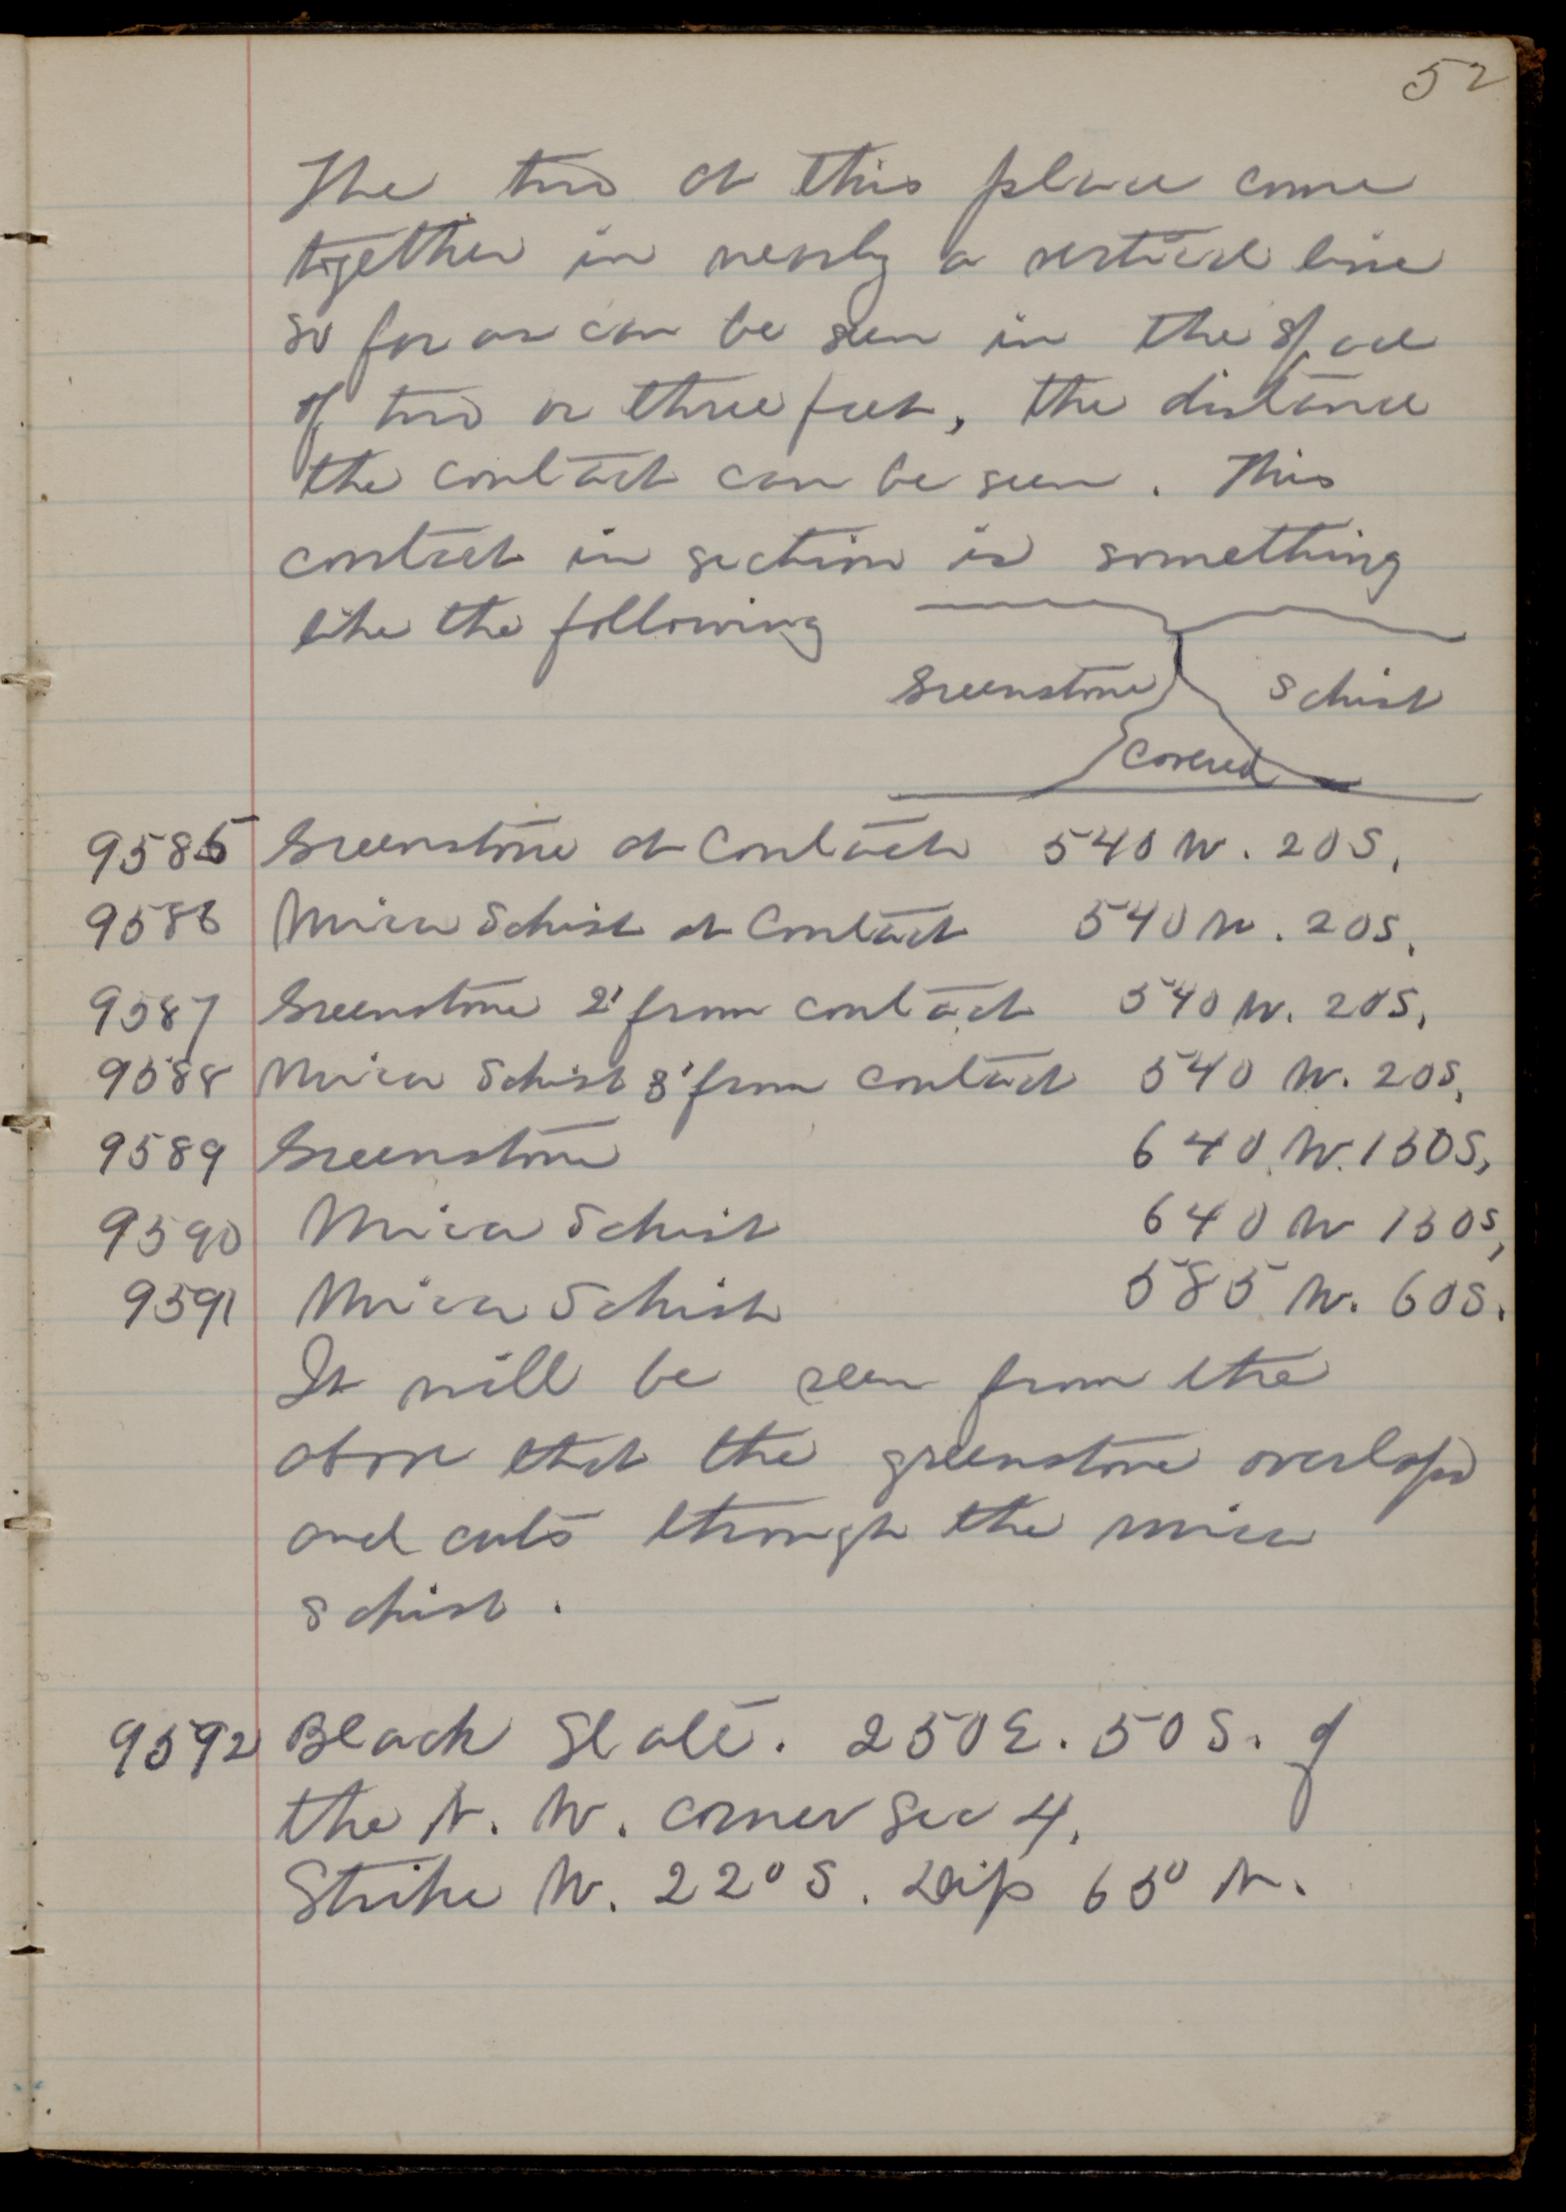 52
The two at this place come
together in nearly a vertical line
so far as can be seen in the space
of two or three feet, the distance
the contact can be seen. This
contact in section is something
like the following
Greenstone Schist
Covered
9585 Greenstone at Contact 540 W. 20 S.
9586 Mica Schist at Contact 540 W. 20 S.
9587 Greenstone 2' from contact 540 W. 20 S.
9588 Mica Schist 3' from contact 540 W. 20 S.
9589 Greenstone 640 W. 150 S.
9590 Mica Schist 640 W 150 S.
9591 Mica Schist 585 W. 60 S.
It will be seen from the
above that the greenstone overlaps
and cuts through the mica
schist.
9592 Black Slate. 250 E. 50 S. of
the N. W. corner Sec 4.
Strike W. 22° S. Dip 65° N.